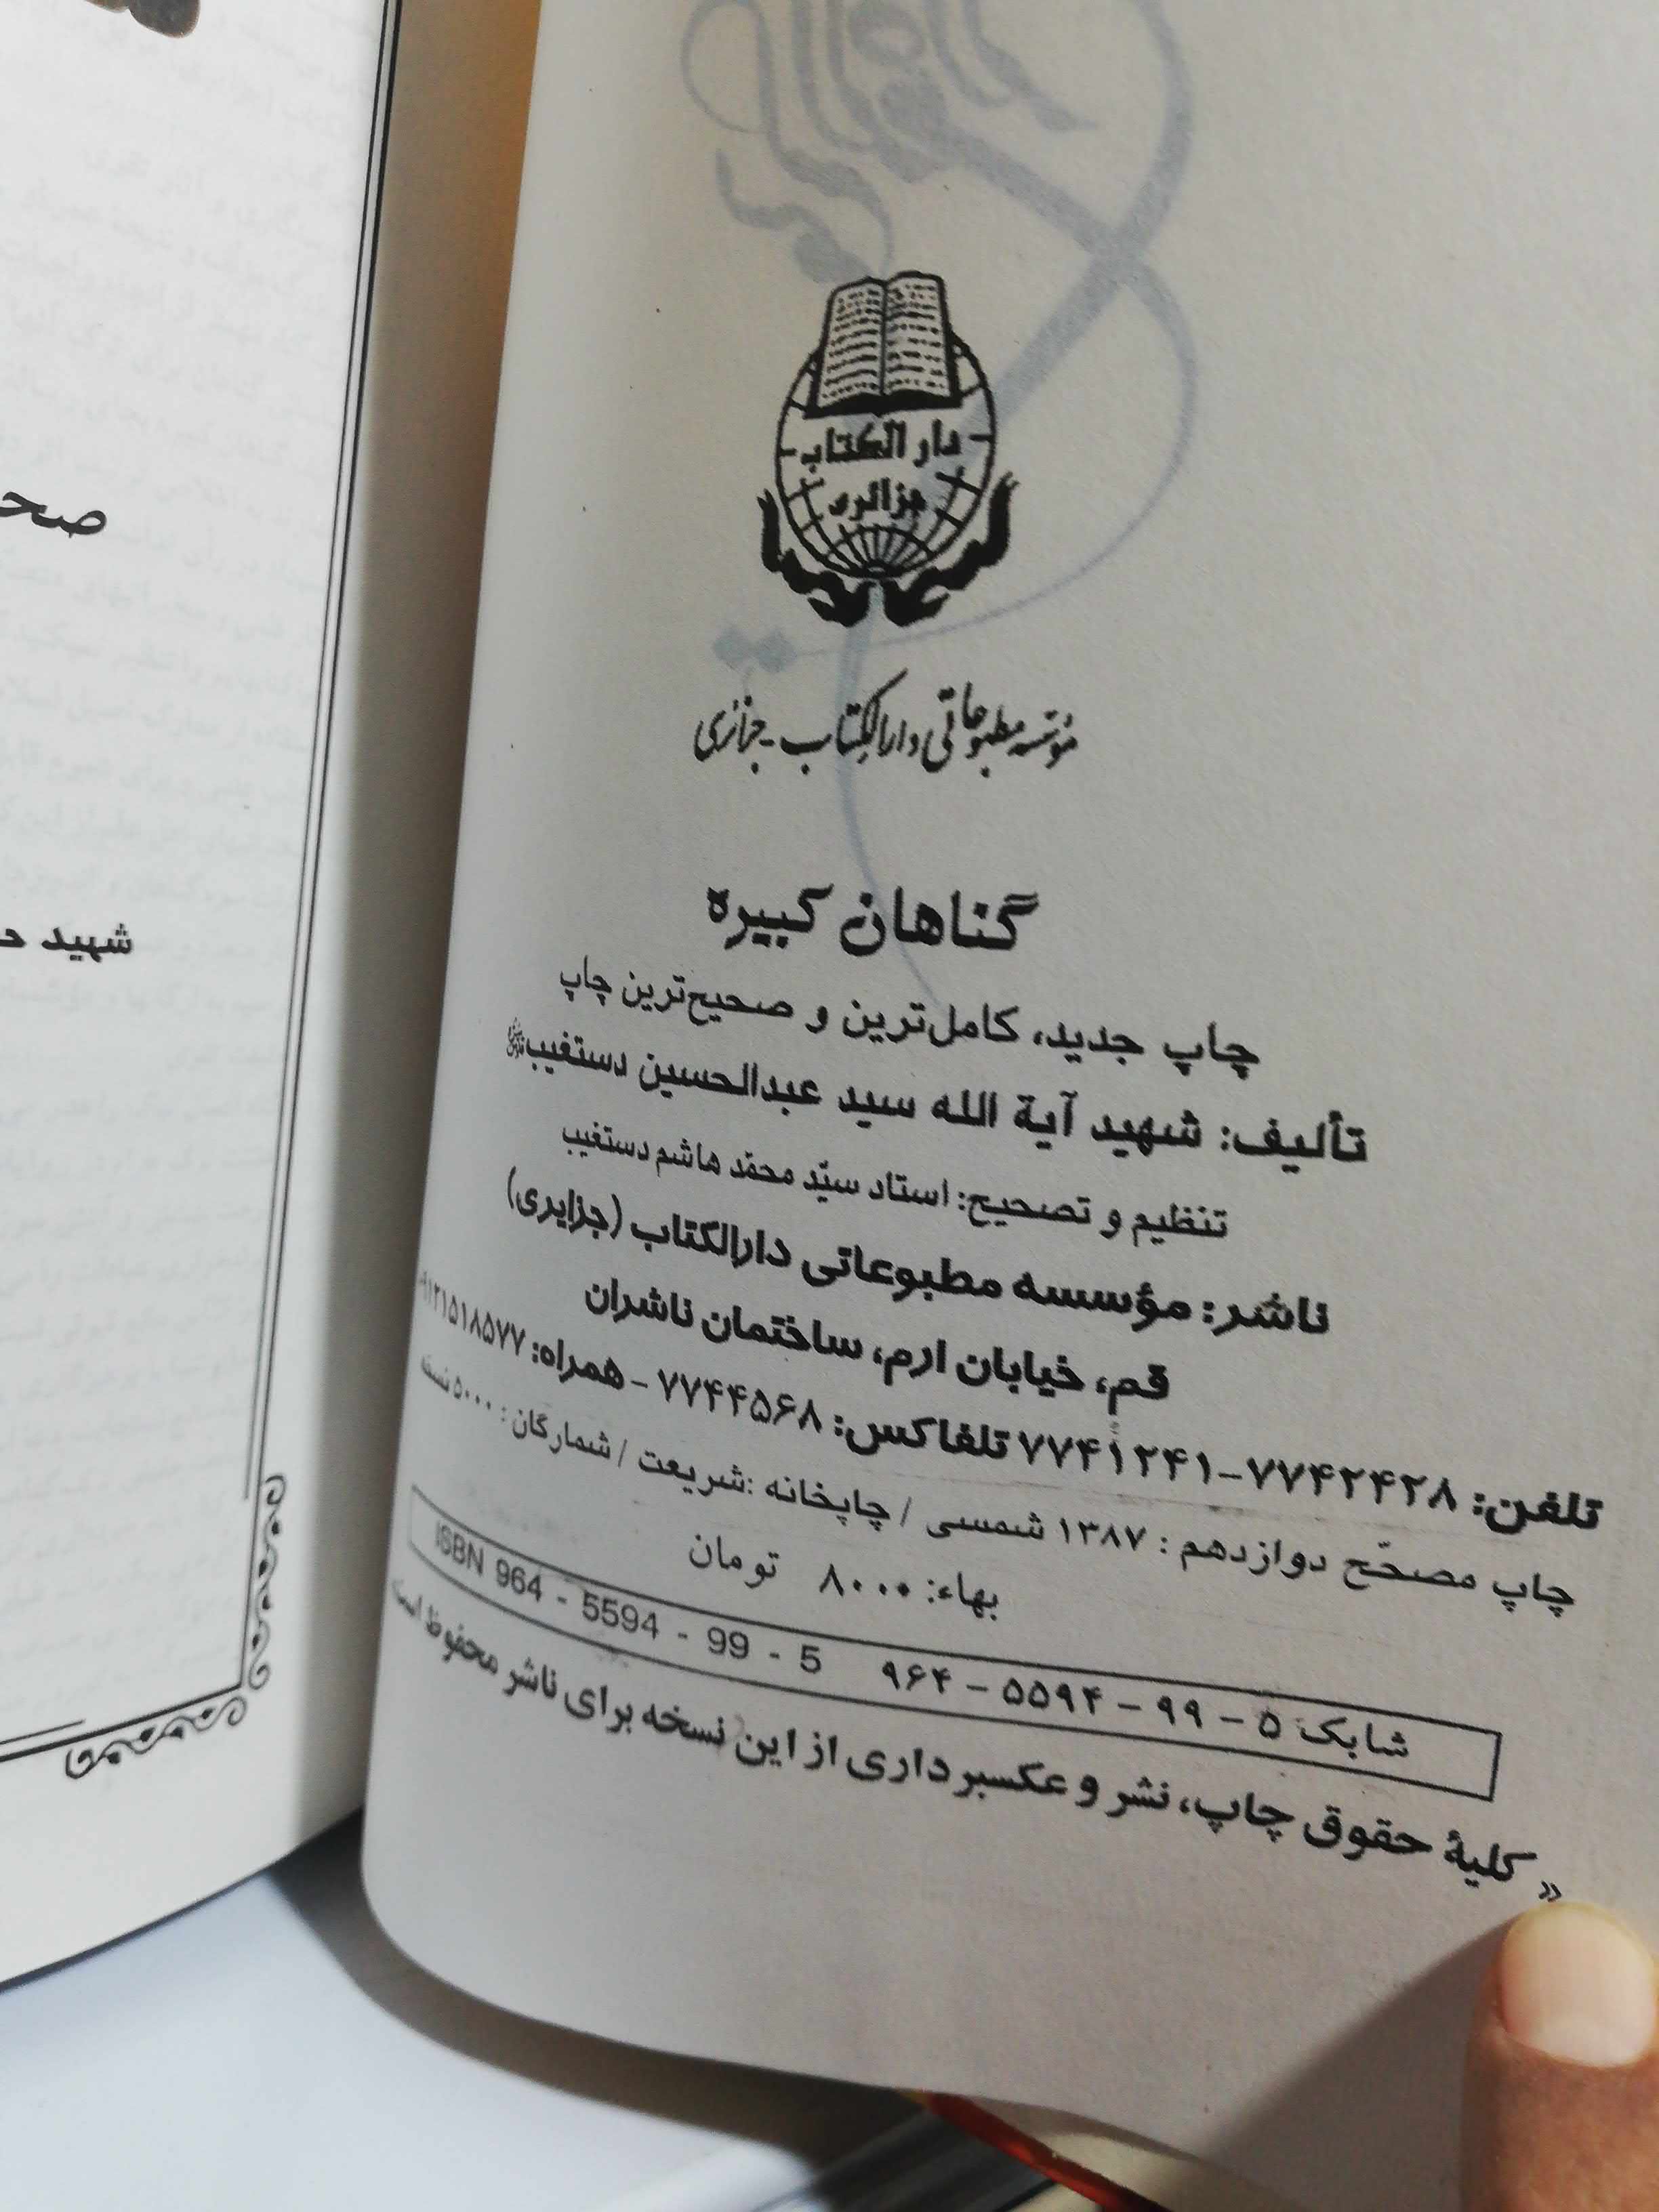 دار الکتاب
جزائری
مؤسسه مطبوعاتی دارالکتاب - جزائری
گناهان کبیره
چاپ جدید، کامل‌ترین و صحیح‌ترین چاپ
تألیف: شهید آیة الله سید عبدالحسین دستغیب
تنظیم و تصحیح: استاد سیّد محمّد هاشم دستغیب
ناشر: مؤسسه مطبوعاتی دارالکتاب (جزایری)
قم، خیابان ارم، ساختمان ناشران
تلفن: ۷۷۴۲۴۲۸-۷۷۴۱۲۴۱ تلفاکس: ۷۷۴۴۵۶۸ - همراه: ۰۹۱۲۱۵۱۸۵۷۷
چاپ مصحّح دوازدهم : ۱۳۸۷ شمسی / چاپخانه :شریعت / شمارگان : ۵۰۰۰
بهاء: ۸۰۰۰ تومان
شابک ۵ - ۹۹ - ۵۵۹۴ - ۹۶۴ ISBN 964 - 5594 - 99 - 5
« کلیهٔ حقوق چاپ، نشر و عکسبرداری از این نسخه برای ناشر محفوظ است
شهید